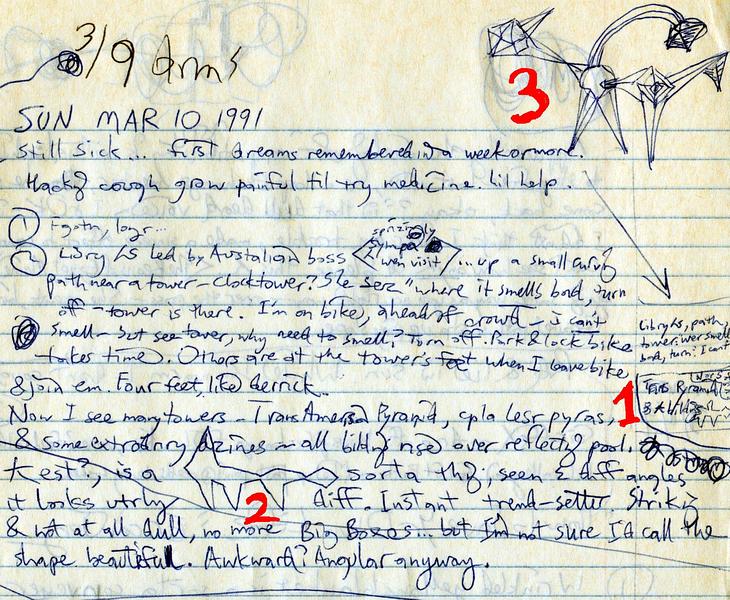 3/9 arms
3
SUN MAR 10 1991
Still sick... first dreams remembered in a week or more.
Hackg cough grow painful til try medicine. Lil help.
① Fgotn, logr...
② Libry hs led by Australian boss sympa wen visit ...up a small curvg
path near a tower - clocktower? She sez "where it smells bad, turn
off - tower is there. I'm on bike, ahead of crowd - i can't
smell - but see tower, why need to smell? Turn off. Park & lock bike
takes time. Others are at the tower's feet when I leave bike
& join em. Four feet, like derrick.
Now I see many towers - TransAmerica Pyramid, cpla lesr pyras,
& some extrordinry dzines - all bildgs rise over reflectg pool.
is a sorta thg, seen @ diff angles
it looks utrly diff. Instant trend-setter. Strikig
& not at all dull, no more Big Boxes... but I'm not sure I'd call the
shape beautiful. Awkward? Angular anyway.
Libry hs, path,
towers wer smell
bad, turn. I can't
Trans Pyramid
3 bildgs
1
2